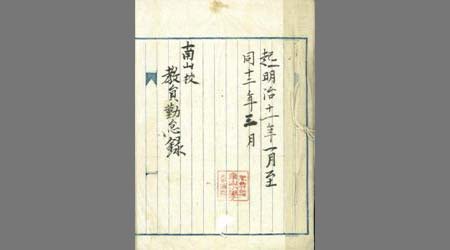 起明治十一年一月至
同十二年三月
南山校
教員勤怠録